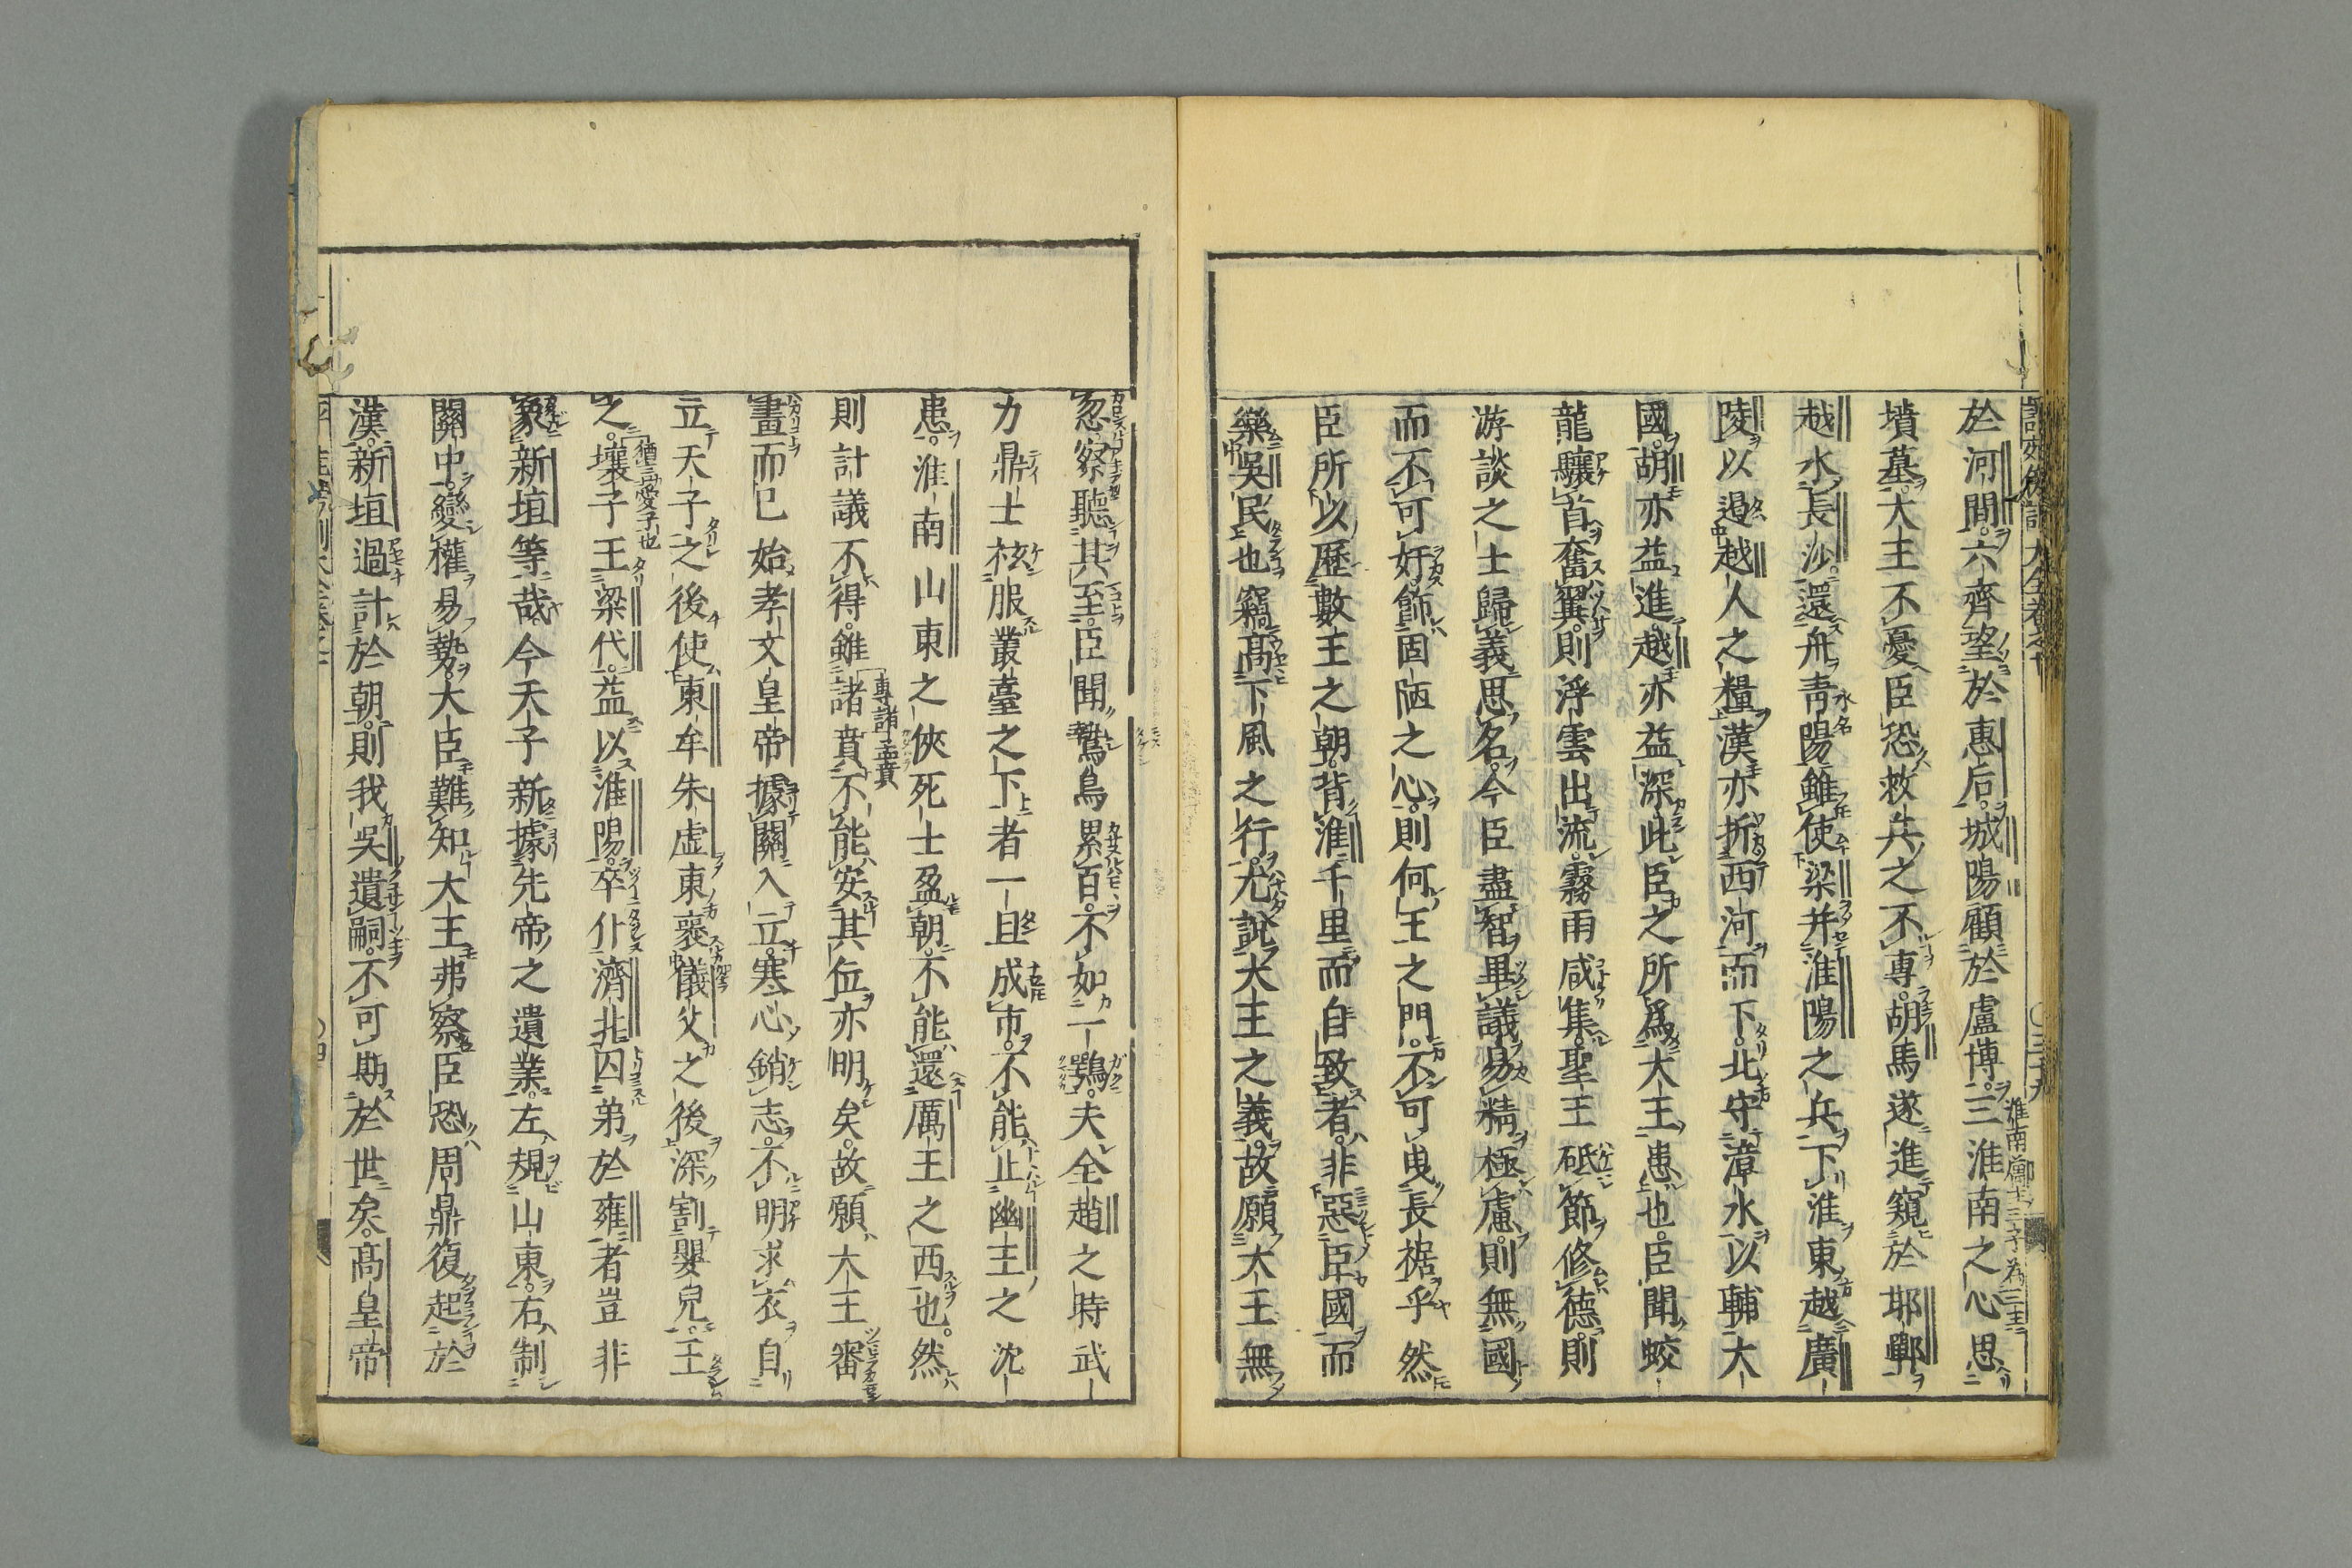 於河間。六齊望於惠后。城陽顧於盧博。三淮南之心思
墳墓。大王不憂。臣恐救兵之不專。胡馬遂進窺於邯鄲
越水長沙。還舟青陽雖使梁并淮陽之兵下淮東越廣
陵以遏越人之糧漢亦折西河而下北守漳水以輔大
國。胡亦益進。越亦益深。此臣之所爲大王患也。臣聞蛟
龍驤首奮翼。則浮雲出流。霧雨咸集。聖王砥節修德。則
游談之士歸義思名。今臣盡智畢議易精極慮。則無國
而不可奸。飾固陋之心。則何王之門。不可曳長裾乎然
臣所以歷數王之朝。背淮千里而自致者。非惡臣國而
樂吳民也竊髙下風之行。尤說大王之義。故願大王無
忽。察聽其至。臣聞鷙鳥累百。不如一鶚。夫全趙之時武
力鼎士袨服叢臺之下者一旦成市。不能止幽王之沈
患。淮南山東之俠死士盈朝。不能還厲王之西也。然
則計議不得。雖諸賁不能安其位亦明矣。故願大王審
畫而已始孝文皇帝據關入立。寒心銷志。不明求衣自
立天子之後使東牟朱虛東襃儀父之後深割嬰兒。王
之。壤子王梁代。益以淮陽。卒仆濟北囚弟於雍者豈非
象新垣等哉。今天子新據先帝之遺業。左規山東。右制
關中。變權易勢。大臣難知大王弗察臣恐周鼎復起於
漢。新垣過計於朝。則我吳遺嗣。不可期於世矣。髙皇帝